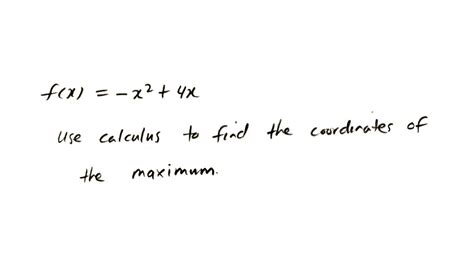 f(x) = -x² + 4x
Use calculus to find the coordinates of
the maximum.